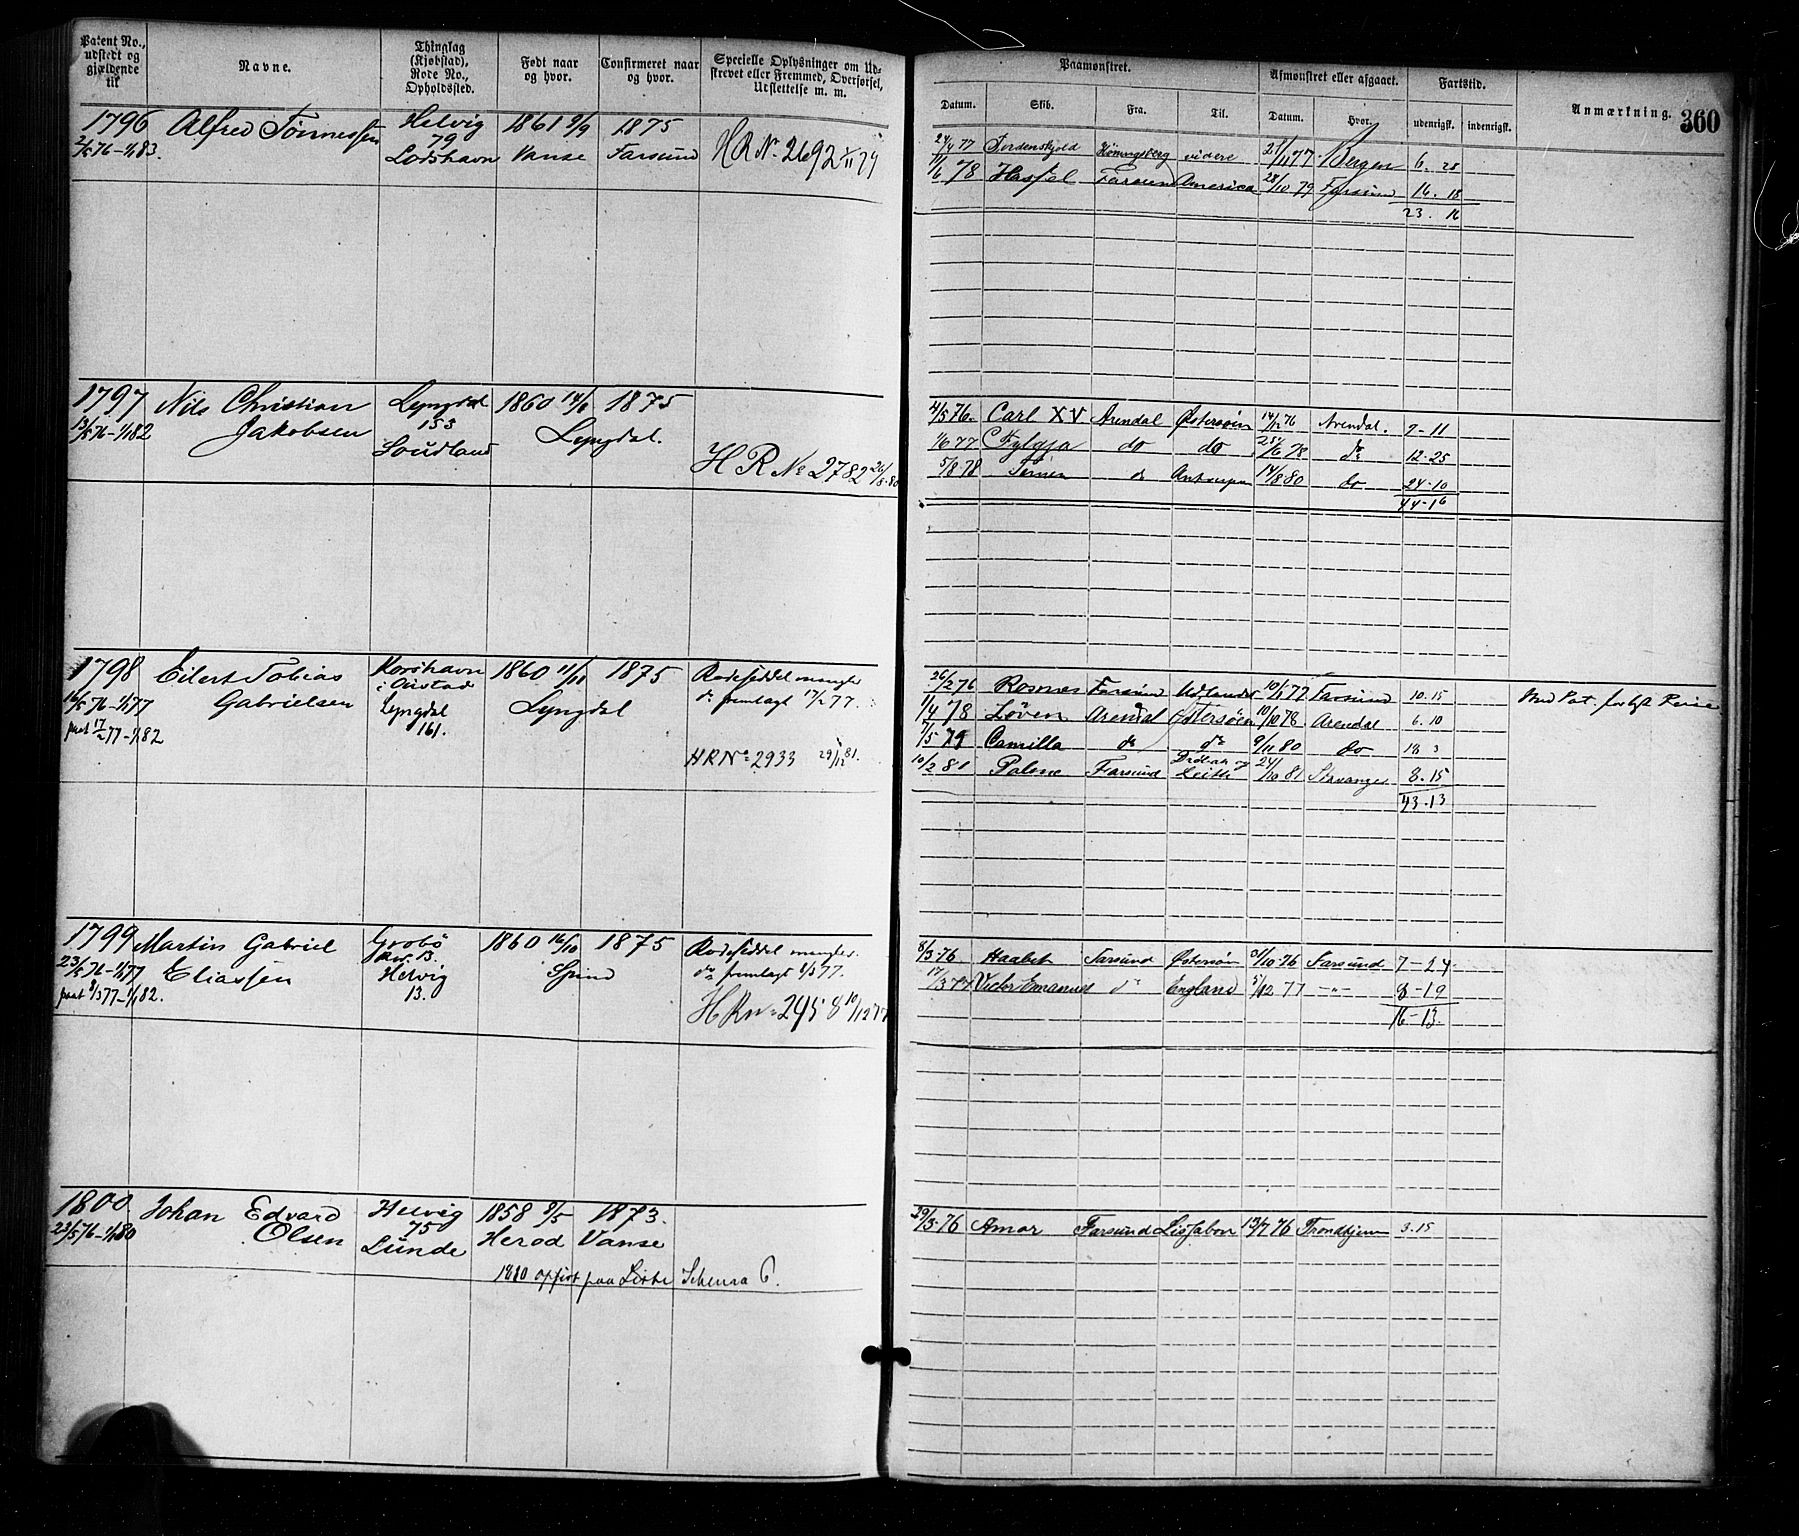 Patent No., udstedt og gjældende til
Navne.
Thinglag (Kjøbstad), Rode No., Opholdssted.
Født naar og hvor.
Confirmeret naar og hvor.
Specielle Oplysninger om Udskrevet eller Fremmed, Overførsel, Udslettelse m. m.
Paamønstret.
Afmønstret eller afgaaet.
Fartstid.
Anmærkning.
360
Datum.
Skib.
Fra.
Til.
Datum.
Hvor.
udenrigsk.
indenrigsk.
1796 Alfred Tønnessen Helvig 1861 9/9 1875
2/5 76-1/1 83. 79
Lodshavn Vanse Farsund HR No. 2692
24/4 77 Tordenskjold videre 77 Bergen 6. 28
11/6 78 Hassel Farsund America 28/10 79 Farsund 16. 18
23. 16
1797 Nils Christian Lyngdal 1860 1875
13/5 76-1/1 82 Jakobsen 153 Lyngdal.
HR No 2782 26/8.80
4/5 76. Carl XV Arendal Østersøen 14/12 76 Arendal. 7-11
Fylgja do do 78 do 12-25
5/8 78 do 14/8 80 do 24-10
44-16
1798 Eilert Tobias Korshavn 1860 11/11 1875 Rodeseddel mangler
16/5 76-1/1 77 Gabrielsen Lyngdal Lyngdal do fremlagt 17/2 77.
17/2 77-1/1 82 161.
HR No 2933 29/12 81.
26/2 76 Rosnes Farsund Udlandet 10/1 77 Farsund 10.15
1/4 78 Løven Arendal Østersøen 10/10 78 Arendal 6.10
7/5 79 Camilla do do 9/11 80 do 18 3
10/2 81 Palme Farsund Leith 24/10 81 Stavanger 8.15
43.13
1799 Martin Gabriel 1860 16/10 1875 Rodeseddel mangler.
23/5 76-1/1 77 Eliassen Helvig Spind do fremlagt 8/3 77.
8/3 77-1/1 82. 13.
HR No 2458 10/12 77
8/3 76 Haabet Farsund Østersøen 31/10 76 Farsund 7-24
17/3 77 Victor Emanuel do England 5/12 77 -"- 8-19
16-13.
1800 Johan Edvard Helvig 1858 9/5 1873.
23/5 76-1/1 80 Olsen 75
Lunde Herad Vanse
1880 opført paa Liste Schema 6.
29/3 76 Amor Farsund Lissabon 13/7 76 Trondhjem 3.15